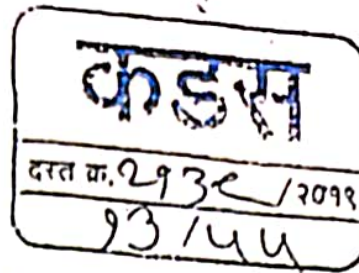 कडस
दस्त क. २१३९/२०१९
१३/५५